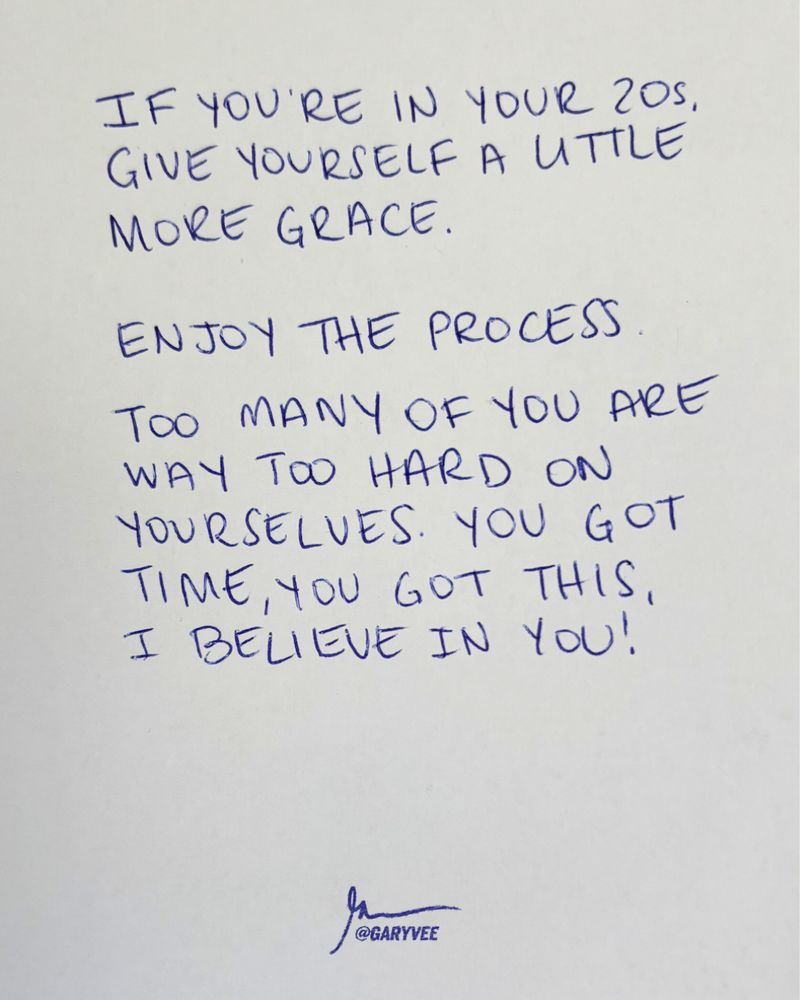 IF YOU'RE IN YOUR 20s,
GIVE YOURSELF A LITTLE
MORE GRACE.
ENJOY THE PROCESS.
TOO MANY OF YOU ARE
WAY TOO HARD ON
YOURSELVES. YOU GOT
TIME, YOU GOT THIS,
I BELIEVE IN YOU!
@GARYVEE